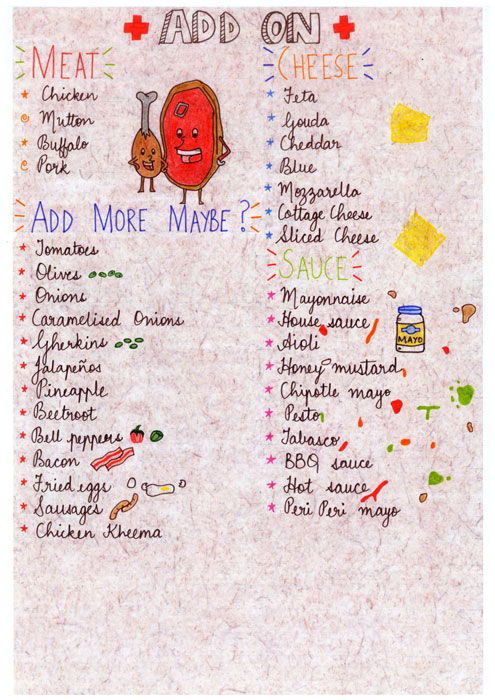 ADD ON
MEAT
Chicken
Mutton
Buffalo
Pork
ADD MORE MAYBE?
Tomatoes
Olives
Onions
Caramelised Onions
Gherkins
Jalapeños
Pineapple
Beetroot
Bell peppers
Bacon
Fried eggs
Sausages
Chicken Kheema
CHEESE
Feta
Gouda
Cheddar
Blue
Mozzarella
Cottage Cheese
Sliced Cheese
SAUCE
Mayonnaise
House sauce
Aioli
Honey mustard
Chipotle mayo
Pesto
Tabasco
BBQ sauce
Hot sauce
Peri Peri mayo
MAYO